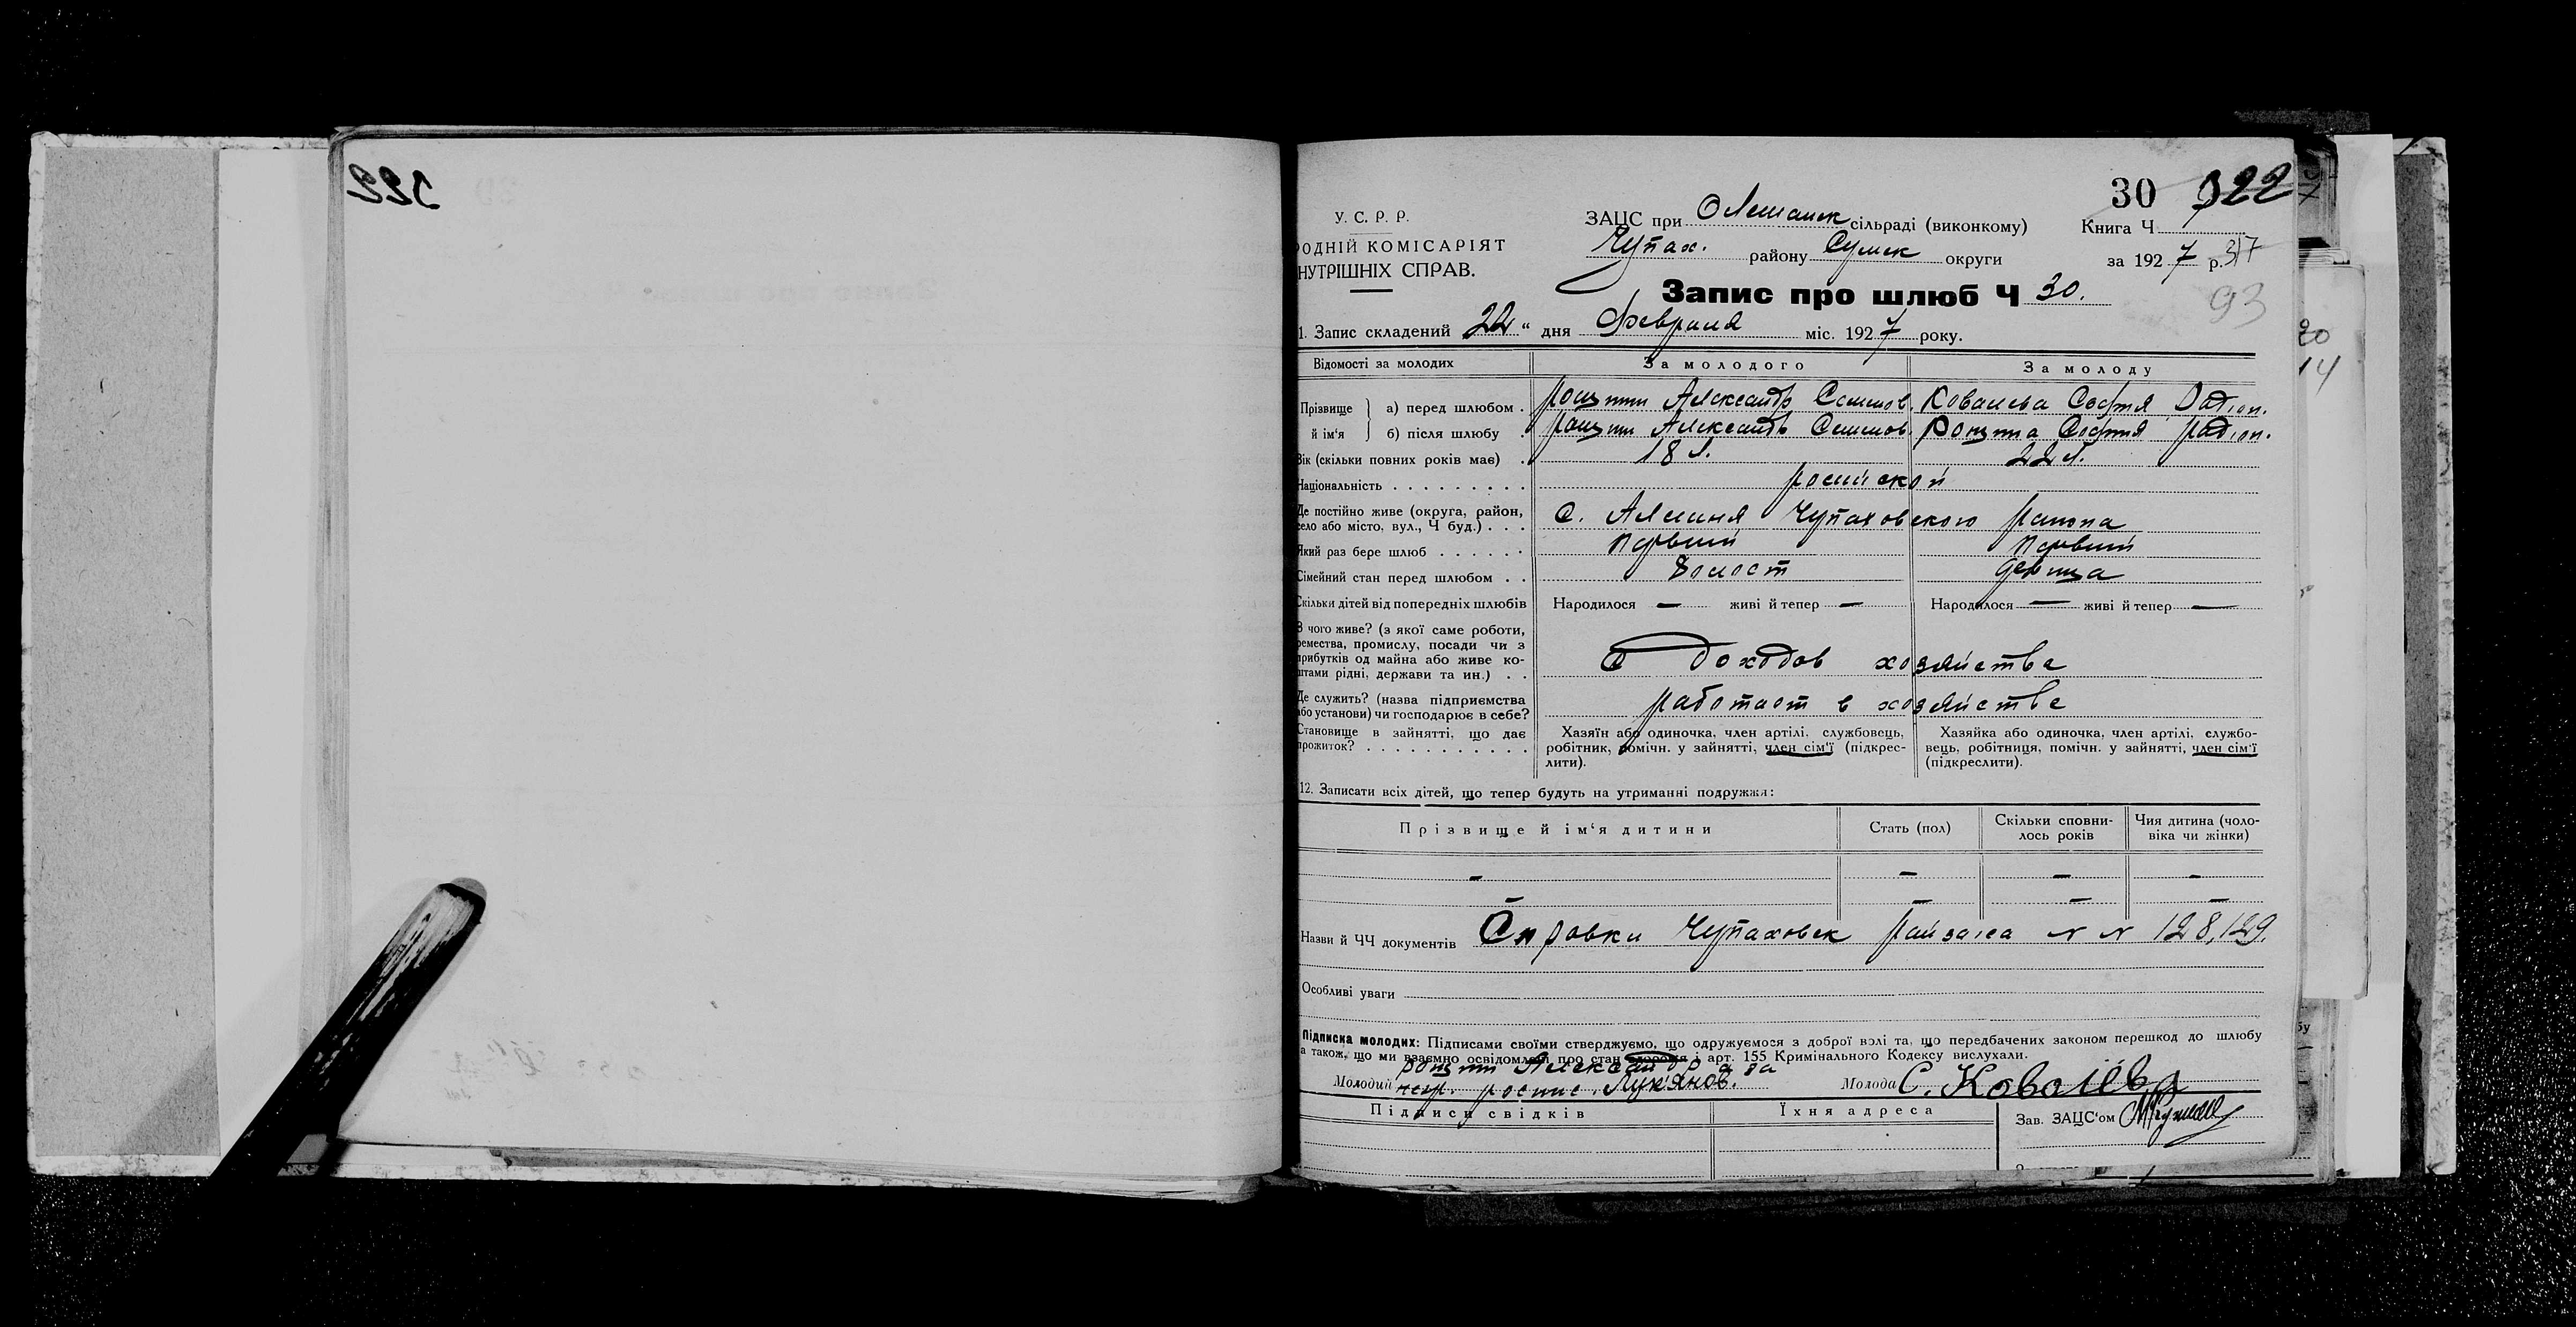 30 322
У. С. Р. Р.
ОДНІЙ КОМІСАРІЯТ
НУТРІШНІХ СПРАВ.
ЗАЦС при Олешанск сільраді (виконкому) Книга Ч
Чупах. району Сумск округи за 1927 р. 317
Запис про шлюб Ч 30.
93
1. Запис складений 22 " дня Февраля міс. 1927 року.
20
14
Відомості за молодих За молодого За молоду
Прізвище й ім'я а) перед шлюбом . Александр Семенов. Ковалева София
б) після шлюбу . Александр Семенов. София Радион.
Вік (скільки повних років має) . 18 л. 22 л.
Національність . . . . . . . . . росийской
Де постійно живе (округа, район,
село або місто, вул., Ч буд.) . . . С. Алешня Чупаховского района
Який раз бере шлюб . . . . . . первий первий
Сімейний стан перед шлюбом . . холост девица
Скільки дітей від попередніх шлюбів Народилося — живі й тепер — Народилося — живі й тепер —
З чого живе? (з якої саме роботи,
ремества, промислу, посади чи з
прибутків од майна або живе ко-
штами рідні, держави та ин.) . . С доходов хозяйства
Де служить? (назва підприємства
або установи) чи господарює в себе? работают в хозяйстве
Становище в зайнятті, що дає
прожиток? . . . . . . . . . . .
Хазяїн або одиночка, член артілі, службовець,
робітник, помічн. у зайнятті, член сім'ї (підкрес-
лити).
Хазяйка або одиночка, член артілі, службо-
вець, робітниця, помічн. у зайнятті, член сім'ї
(підкреслити).
12. Записати всіх дітей, що тепер будуть на утриманні подружжя:
Прізвище й ім'я дитини Стать (пол) Скільки сповни-
лось років Чия дитина (чоло-
віка чи жінки)
— — — —
— — — —
Назви й ЧЧ документів Справки Чупаховск Райзагса N N 128, 129.
Особливі уваги
Підписка молодих: Підписами своїми стверджуємо, що одружуємося з доброї волі та, що передбачених законом перешкод до шлюбу
а також, що ми взаємно освідомлені про стан здоров'я і арт. 155 Кримінального Кодексу вислухали.
Александр а за
Молодий негр. роспис. Лук'янов. Молода С. Ковалёва
Підписи свідків Їхня адреса Зав. ЗАЦС'ом